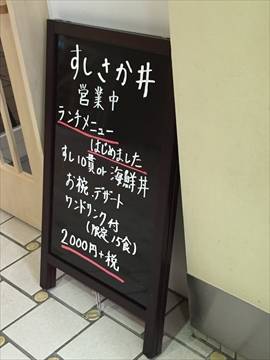 すしさか井
営業中
ランチメニュー
はじめました
すし10貫or海鮮丼
お椀、デザート
ワンドリンク付
(限定15食)
2000円+税